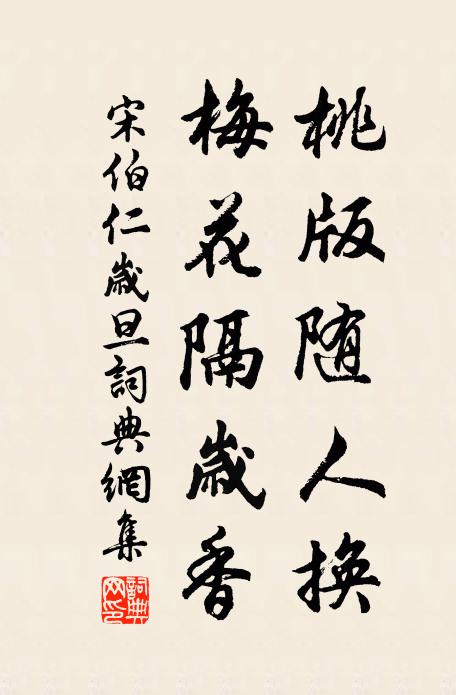 桃版随人換
梅花隔歲香
宋伯仁歲旦詞典網集
詞典網印